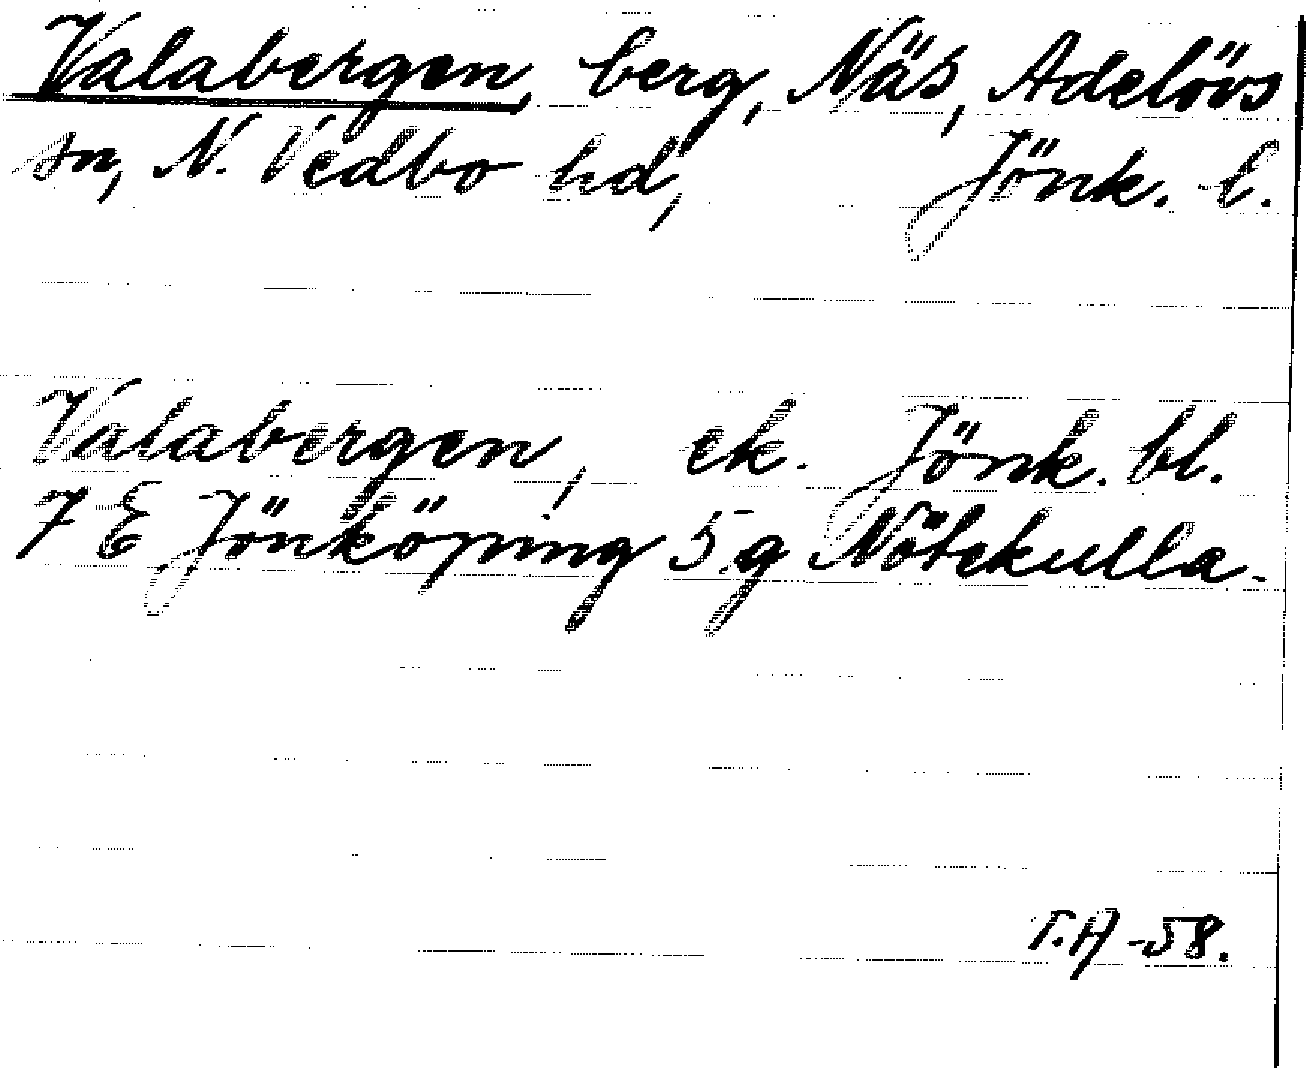 Valabergen, berg, Näs, Adelövs
sn, N. Vedbo hd, Jönk. l.
Valabergen, ek. Jönk. bl.
7 E Jönköping 5 g Nötekulla.
T.A -58.